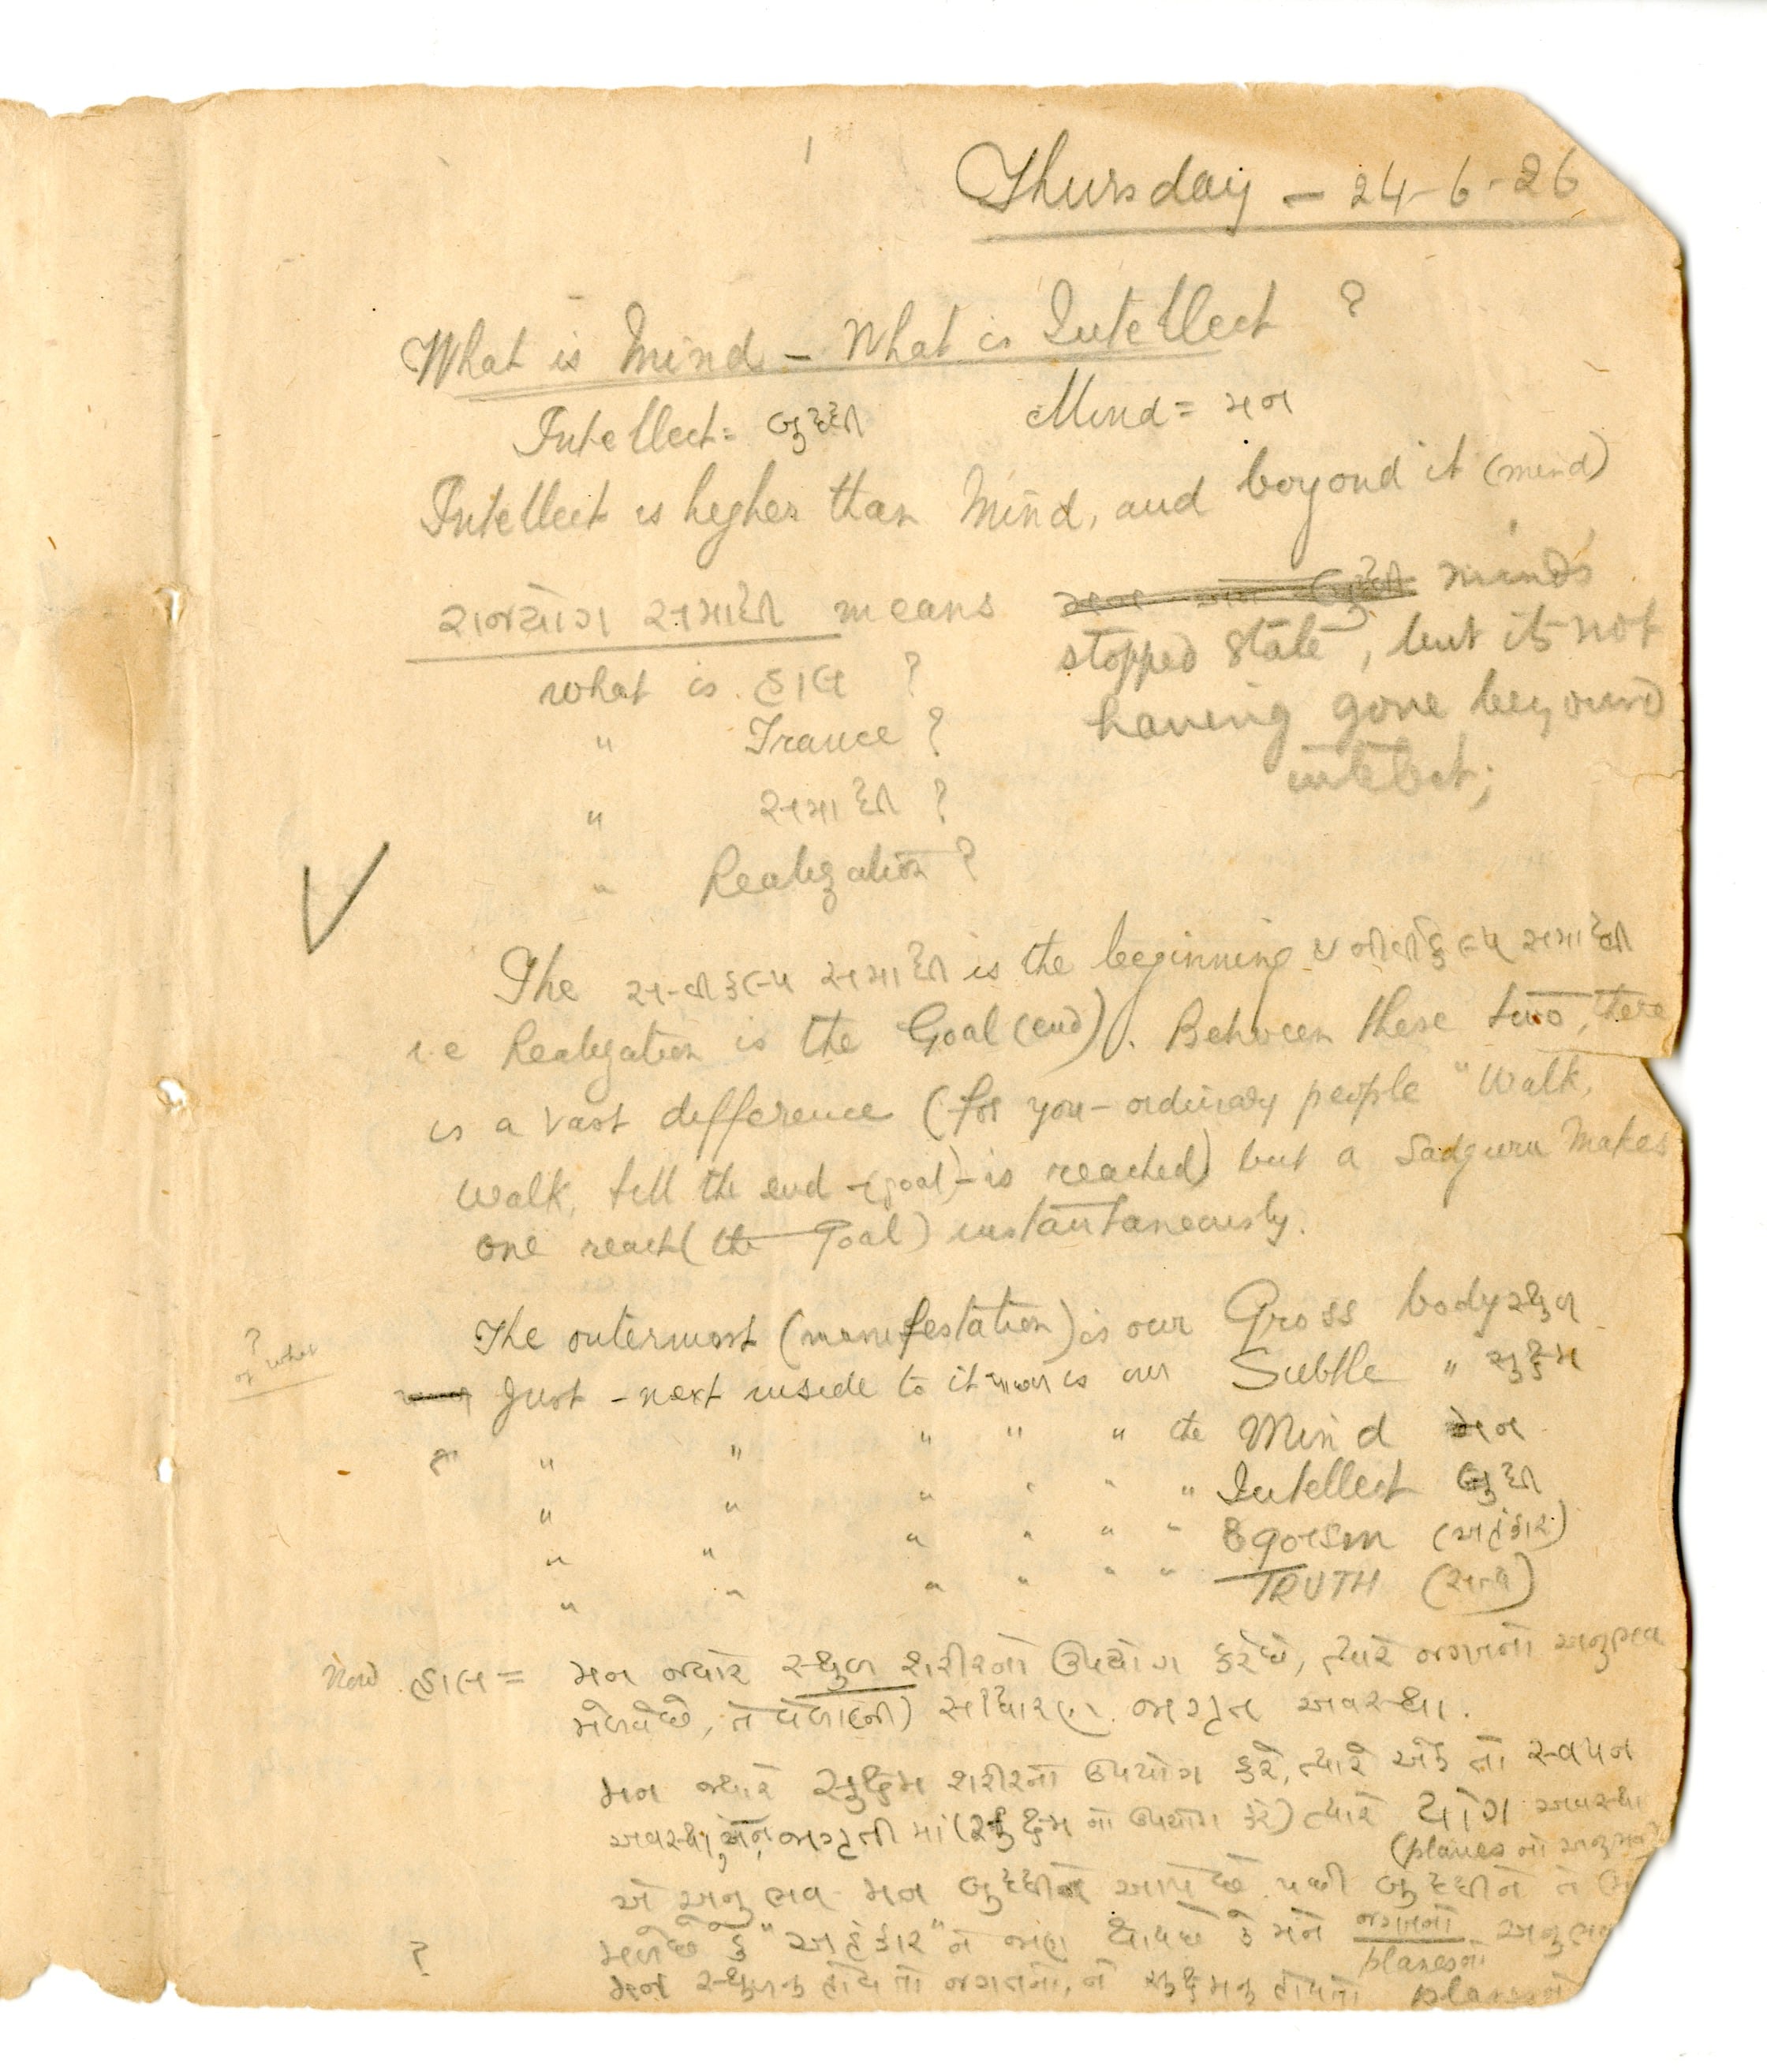 1
Thursday - 24-6-26
What is Mind - What is Intellect ?
Intellect = બુદ્ધી Mind = મન
Intellect is higher than Mind, and beyond it (mind)
રાજયોગ સમાધી means minds
stopped state, but its not
having gone beyound
intellect;
what is હાલ ?
" Trance ?
" સમાધી ?
" Realization ?
The સ-વીકલ્પ સમાધી is the beginning નીર્વીકલ્પ સમાધી
i.e Realization is the Goal (end). Between these two, there
is a vast difference (for you - ordinary people "Walk,
walk, till the end -(goal)- is reached) but a Sadguru makes
one reach (the Goal) instantaneously.
The outermost (manifestation) is our Gross body સ્થુળ
? of what
Just - next inside to it is our Subtle " સુક્ષ્મ
" " " " " the Mind મન
" " " " " " Intellect બુદ્ધી
" " " " " " Egoism (અહંકાર)
" " " " " " TRUTH (સત્ય)
Now હાલ = મન જ્યારે સ્થુળ શરીરનો ઉપયોગ કરેછે, ત્યારે જગતનો અનુભવ
મેળવેછે, તે સાધારણ જાગૃત અવસ્થા.
મન જ્યારે સુક્ષ્મ શરીરનો ઉપયોગ કરે, ત્યારે એક તો સ્વપન
અવસ્થા, જાગૃતી માં (સુક્ષ્મ નો ઉપયોગ કરે) ત્યારે યોગ અવસ્થા
(planes નો અનુભવ)
એ અનુભવ મન બુદ્ધીને આપે છે પછી બુદ્ધીને તે
મળેછે કે "અહંકાર" ને જાણ થાયછે કે મને જગતનો અનુભવ
planesનો
?
મન સ્થુળનુ હોય તો જગતનો, ને સુક્ષ્મનુ હોયતો planesનો